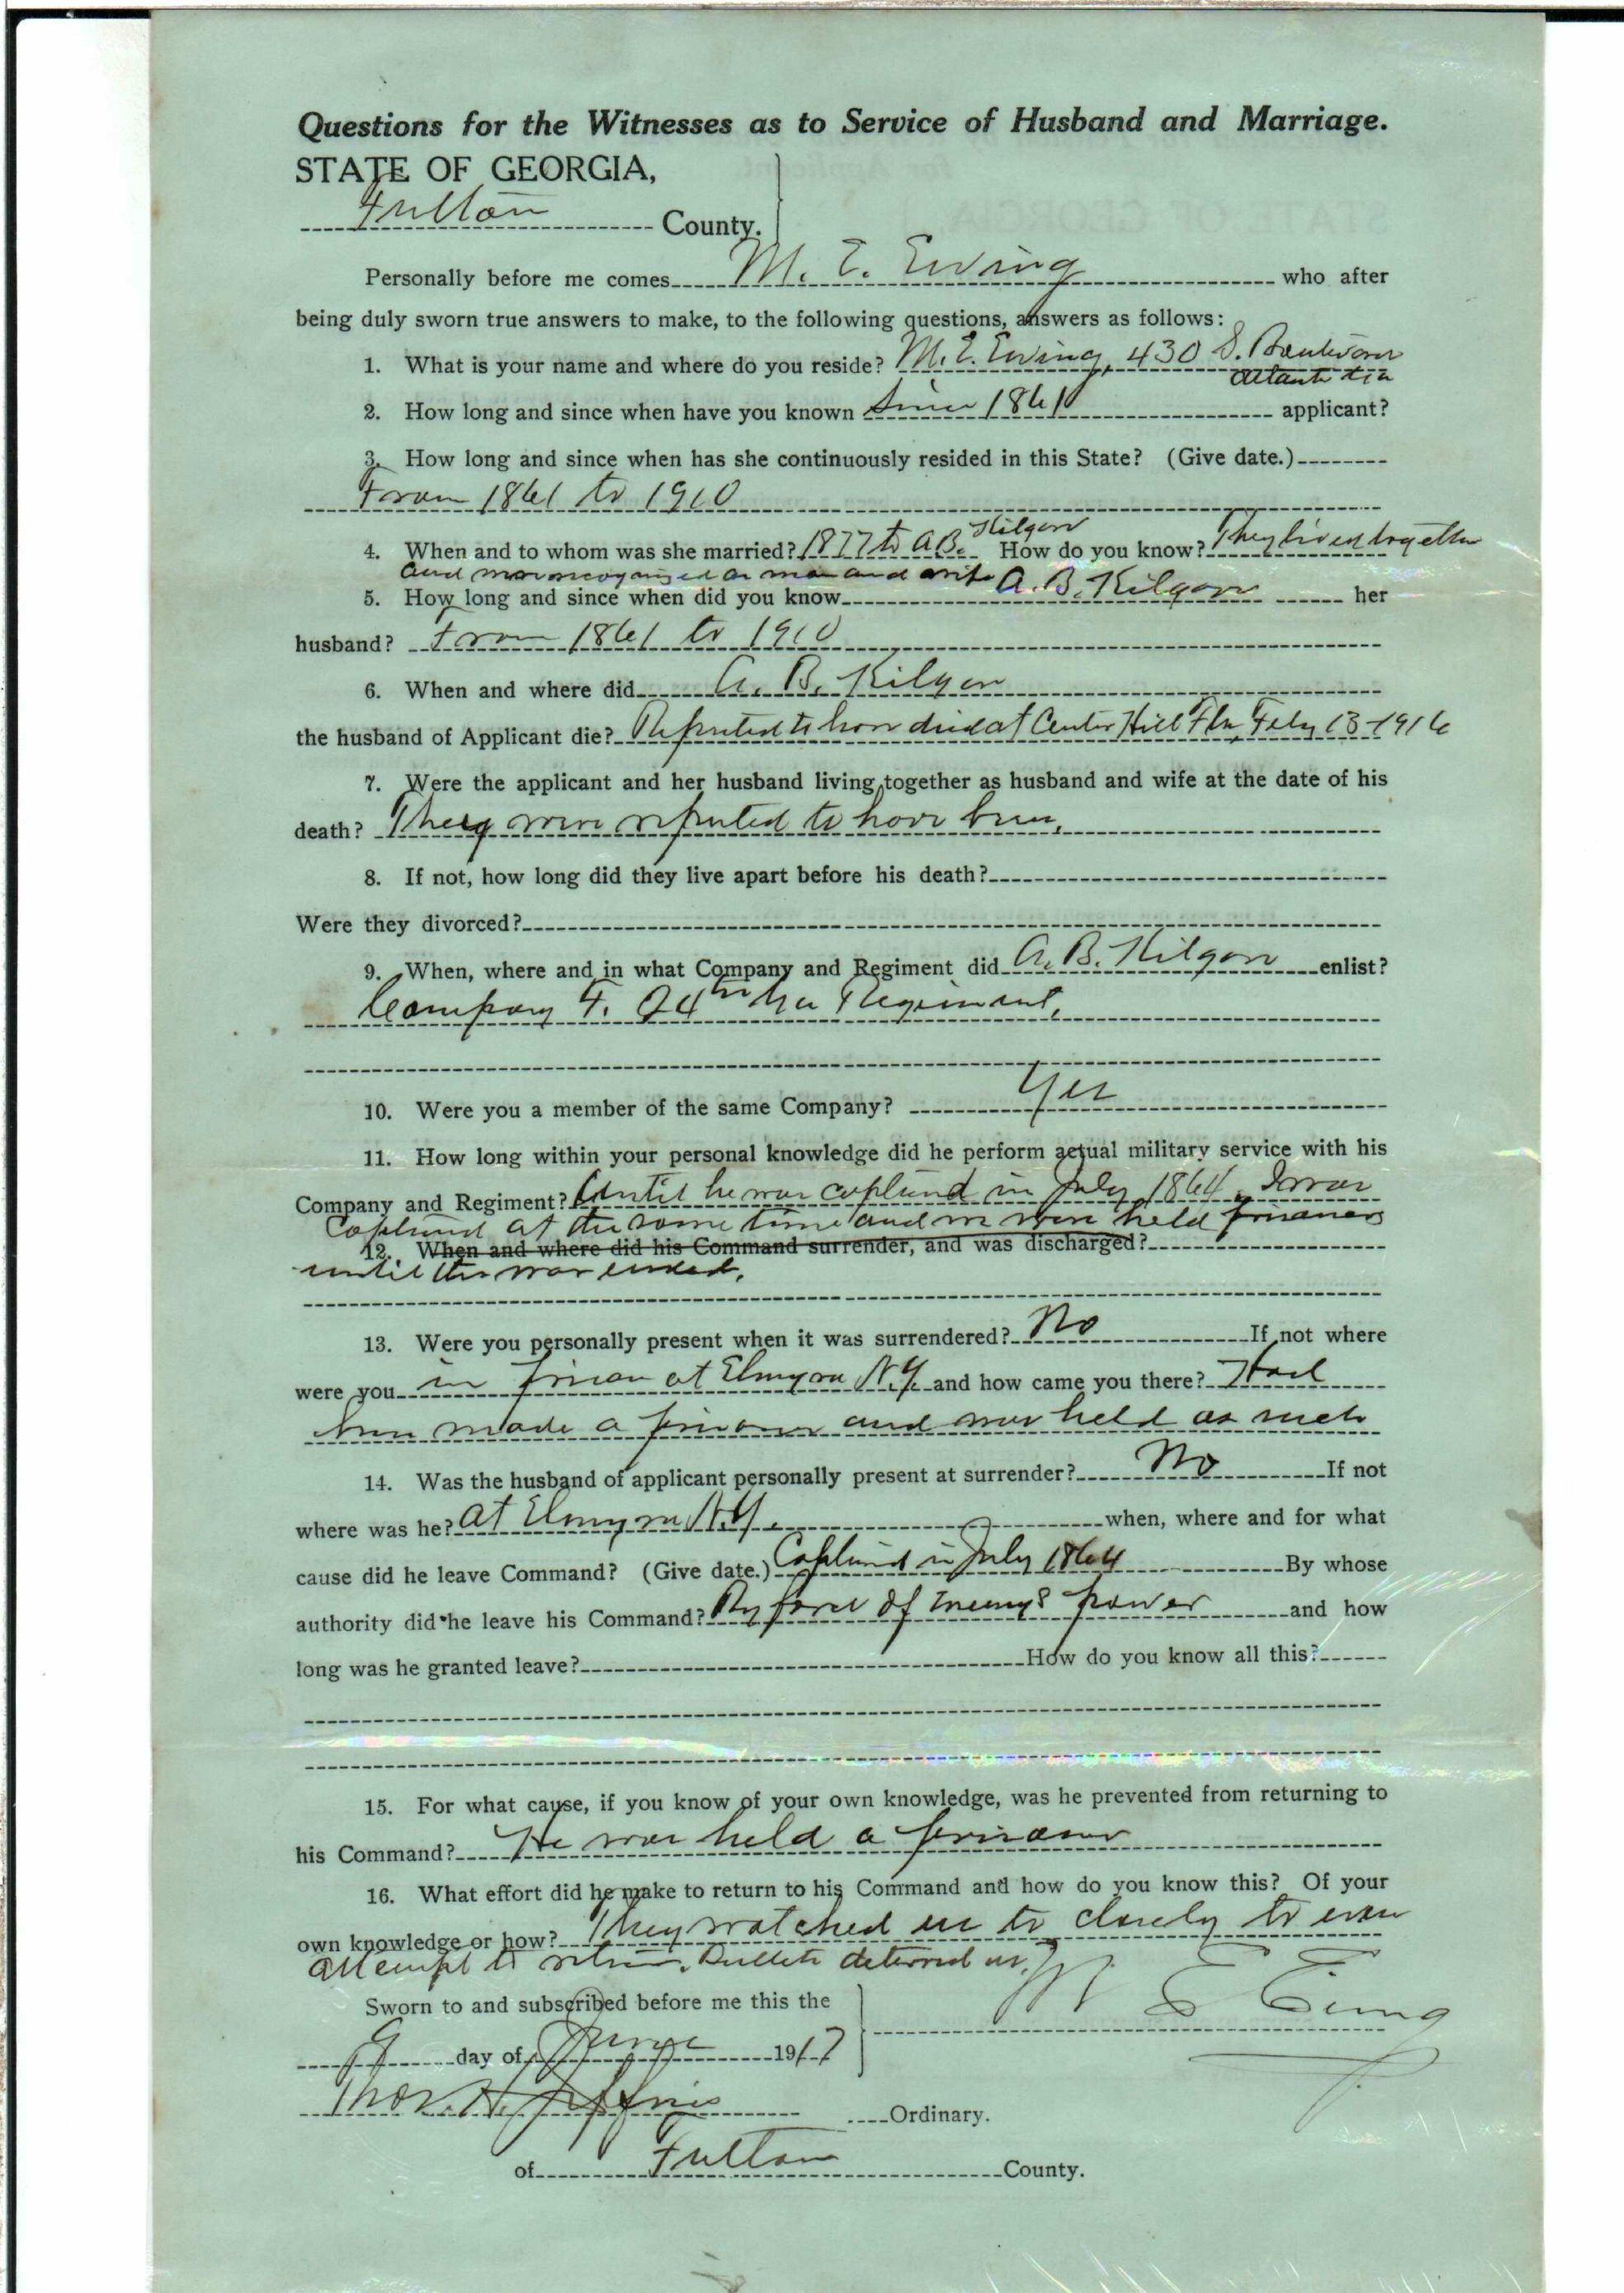 Questions for the Witnesses as to Service of Husband and Marriage.
STATE OF GEORGIA,
Fulton County.
Personally before me comes M. E. Ewing who after
being duly sworn true answers to make, to the following questions, answers as follows:
1. What is your name and where do you reside? M. E. Ewing, 430 S. Boulevard
Atlanta Ga
2. How long and since when have you known Since 1861 applicant?
3. How long and since when has she continuously resided in this State? (Give date.)
From 1861 to 1910
4. When and to whom was she married? 1877 to A.B. Kilgore How do you know? They lived together
and were recognized as man and wife
5. How long and since when did you know A. B. Kilgore her
husband? From 1861 to 1910
6. When and where did A. B. Kilgore
the husband of Applicant die? Reputed to have died at Center Hill Fla, Feby 13-1916
7. Were the applicant and her husband living together as husband and wife at the date of his
death? They were reputed to have been,
8. If not, how long did they live apart before his death?
Were they divorced?
9. When, where and in what Company and Regiment did A. B. Kilgore enlist?
Company F. 24th Regiment,
10. Were you a member of the same Company? Yes
11. How long within your personal knowledge did he perform actual military service with his
Company and Regiment? Until he was captured in July 1864. I was
captured at the same time and we were held prisoners
12. When and where did his Command surrender, and was discharged?
until the war ended.
13. Were you personally present when it was surrendered? No If not where
were you in prison at Elmyra N.Y. and how came you there? Had
been made a prisoner and was held as such
14. Was the husband of applicant personally present at surrender? No If not
where was he? at Elmyra N.Y. when, where and for what
cause did he leave Command? (Give date.) Captured in July 1864 By whose
authority did he leave his Command? By force of Enemys power and how
long was he granted leave? How do you know all this?
15. For what cause, if you know of your own knowledge, was he prevented from returning to
his Command? He was held a prisoner
16. What effort did he make to return to his Command and how do you know this? Of your
own knowledge or how? They watched us to closely to even
attempt to return. Bullets deterred us.
M E Ewing
Sworn to and subscribed before me this the
9 day of June 1917
Thos. H. Jeffries
Ordinary.
of Fulton County.